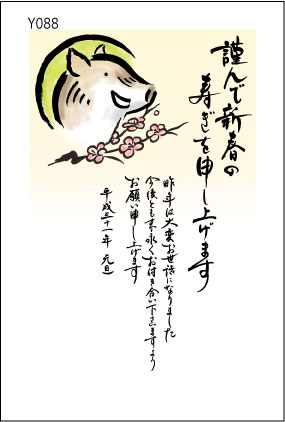 Y088
謹んで新春の
寿ぎを申し上げます
昨年は大変お世話になりました
今後とも末永くお付き合い下さいますよう
お願い申し上げます
平成三十一年 元旦